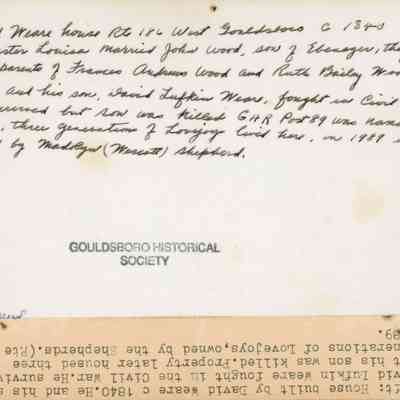 d Weare house Rte 186 West Gouldsboro C 1840
ster Louisa married John Wood, son of Ebenezer, the
parents of Frances Andrews Wood and Ruth Bailey Woo
and his son, David Lufkin Weare, fought in Civil
urvived but son was killed GAR Post 89 was name
, three generations of Lovejoys lived here, in 1989 i
d by Madolyn (Wescott) Shepherd.
GOULDSBORO HISTORICAL
SOCIETY
ft: House built by David Weare c 1840. He and his s
vid Lufkin Weare fought in the Civil War. He surviv
t his son was killed. Property later housed three
nerations of Lovejoys, owned by the Shepherds. (Rte
89.